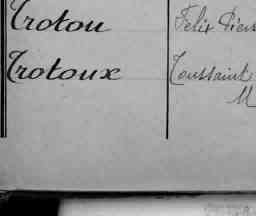 Trotou Felix Pierr
Trotoux Toussaint
M